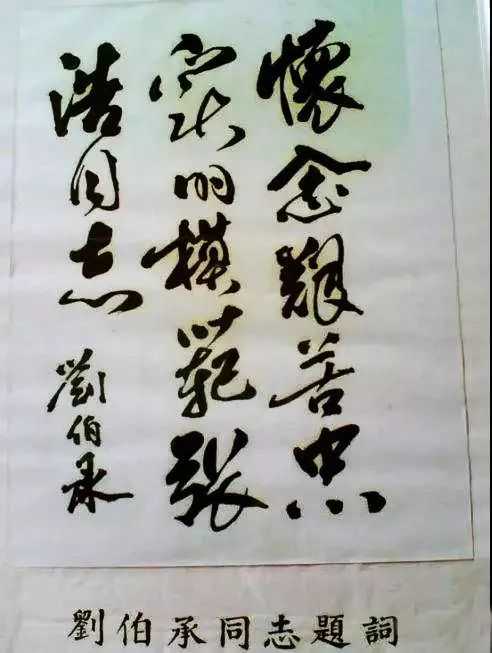 懷念艱苦忠
实的模範張
浩同志
劉伯承
劉伯承同志題詞